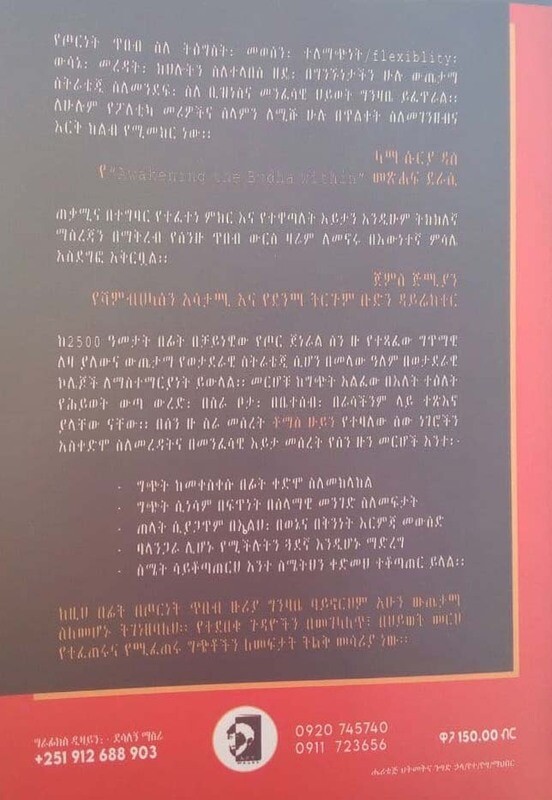 የጦርነት ጥበብ ስለ ትዕግስት፤ መወሰን፤ ተለማጭነት/flexiblity፤
ውሳኔ፤ መረዳት፤ ከሀሉትን ስለተላበሰ ዘዴ፤ በግንኙነታችን ሁሉ ውጤታማ
ስትራቴጂ ስለመንደፍ፤ ስለ ቢዝነስና መንፈሳዊ ህይወት ግንዛቤ ይፈጥራል።
ለሁሉም የፖለቲካ መሪዎችና ሰላምን ለሚሹ ሁሉ በጥልቀት ስለመገንዘብና
እርቅ ከልብ የሚመክር ነው።
ላማ ሱርያ ዳስ
የ"Awakening the Budha within" መጽሐፍ ደራሲ
ጠቃሚና በተግባር የተፈተነ ምክር እና የተዋጣለት እይታን እንዲሁም ትክክለኛ
ማስረጃን በማቅረብ የሰንዙ ጥበብ ውርስ ዛሬም ለመኖሩ በእውነተኛ ምሳሌ
አስደግፎ አቅርቧል።
ጀምስ ጅሚያን
የሻምብሀላሰን አሳታሚ እና የደንማ ትርጉም ቡድን ዳይሬክተር
ከ2500 ዓመታት በፊት በቻይናዊው የጦር ጀነራል ሰን ዙ የተጻፈው ግጥማዊ
ለዛ ያለውና ውጤታማ የወታደራዊ ስትራቴጂ ሲሆን በመላው ዓለም በወታደራዊ
ኮሌጆች ለማስተማርያነት ይውላል። መርሆቹ ከግጭት አልፈው በእለት ተዕለት
የሕይወት ውጣ ውረድ፤ በስራ ቦታ፤ በቤተሰብ፤ በራሳችንም ላይ ተጽእኖ
ያላቸው ናቸው። በሰን ዙ ስራ መሰረት ቶማስ ሁይን የተባለው ሰው ነገሮችን
አስቀድሞ ስለመረዳትና በመንፈሳዊ እይታ መሰረት የሰን ዙን መርሆች እንተ፡-
- ግጭት ከመቀስቀሱ በፊት ቀድሞ ስለመከላከል
- ግጭት ሲነሳም በፍጥነት በሰላማዊ መንገድ ስለመፍታት
- ጠላት ሲያጋጥም በእልህ፤ በወኔና በትንነት እርምጃ መውሰድ
- ባላንጋራ ሊሆኑ የሚችሉትን ጓደኛ እንዲሆኑ ማድረግ
- ስሜት ሳይቆጣጠርህ አንተ ስሜትህን ቀድመህ ተቆጣጠር ይላል።
ከዚህ በፊት በጦርነት ጥበብ ዙሪያ ግንዛቤ ባይኖርህም አሁን ውጤታማ
ስለመሆኑ ትገነዘባለህ። የተደበቁ ጉዳዮችን በመገላለጥ፤ በህይወት መርህ
የተፈጠሩና የሚፈጠሩ ግጭቶችን ለመፍታት ትልቅ መሳሪያ ነው።
ግራፊክስ ዲዛይን፡- ደሳለኝ ማስሬ
+251 912 688 903
0920 745740
0911 723656
ዋጋ 150.00 ብር
ሔሪቴጅ ህትመትና ንግድ ኃላ/የተ/የግ/ማህበር